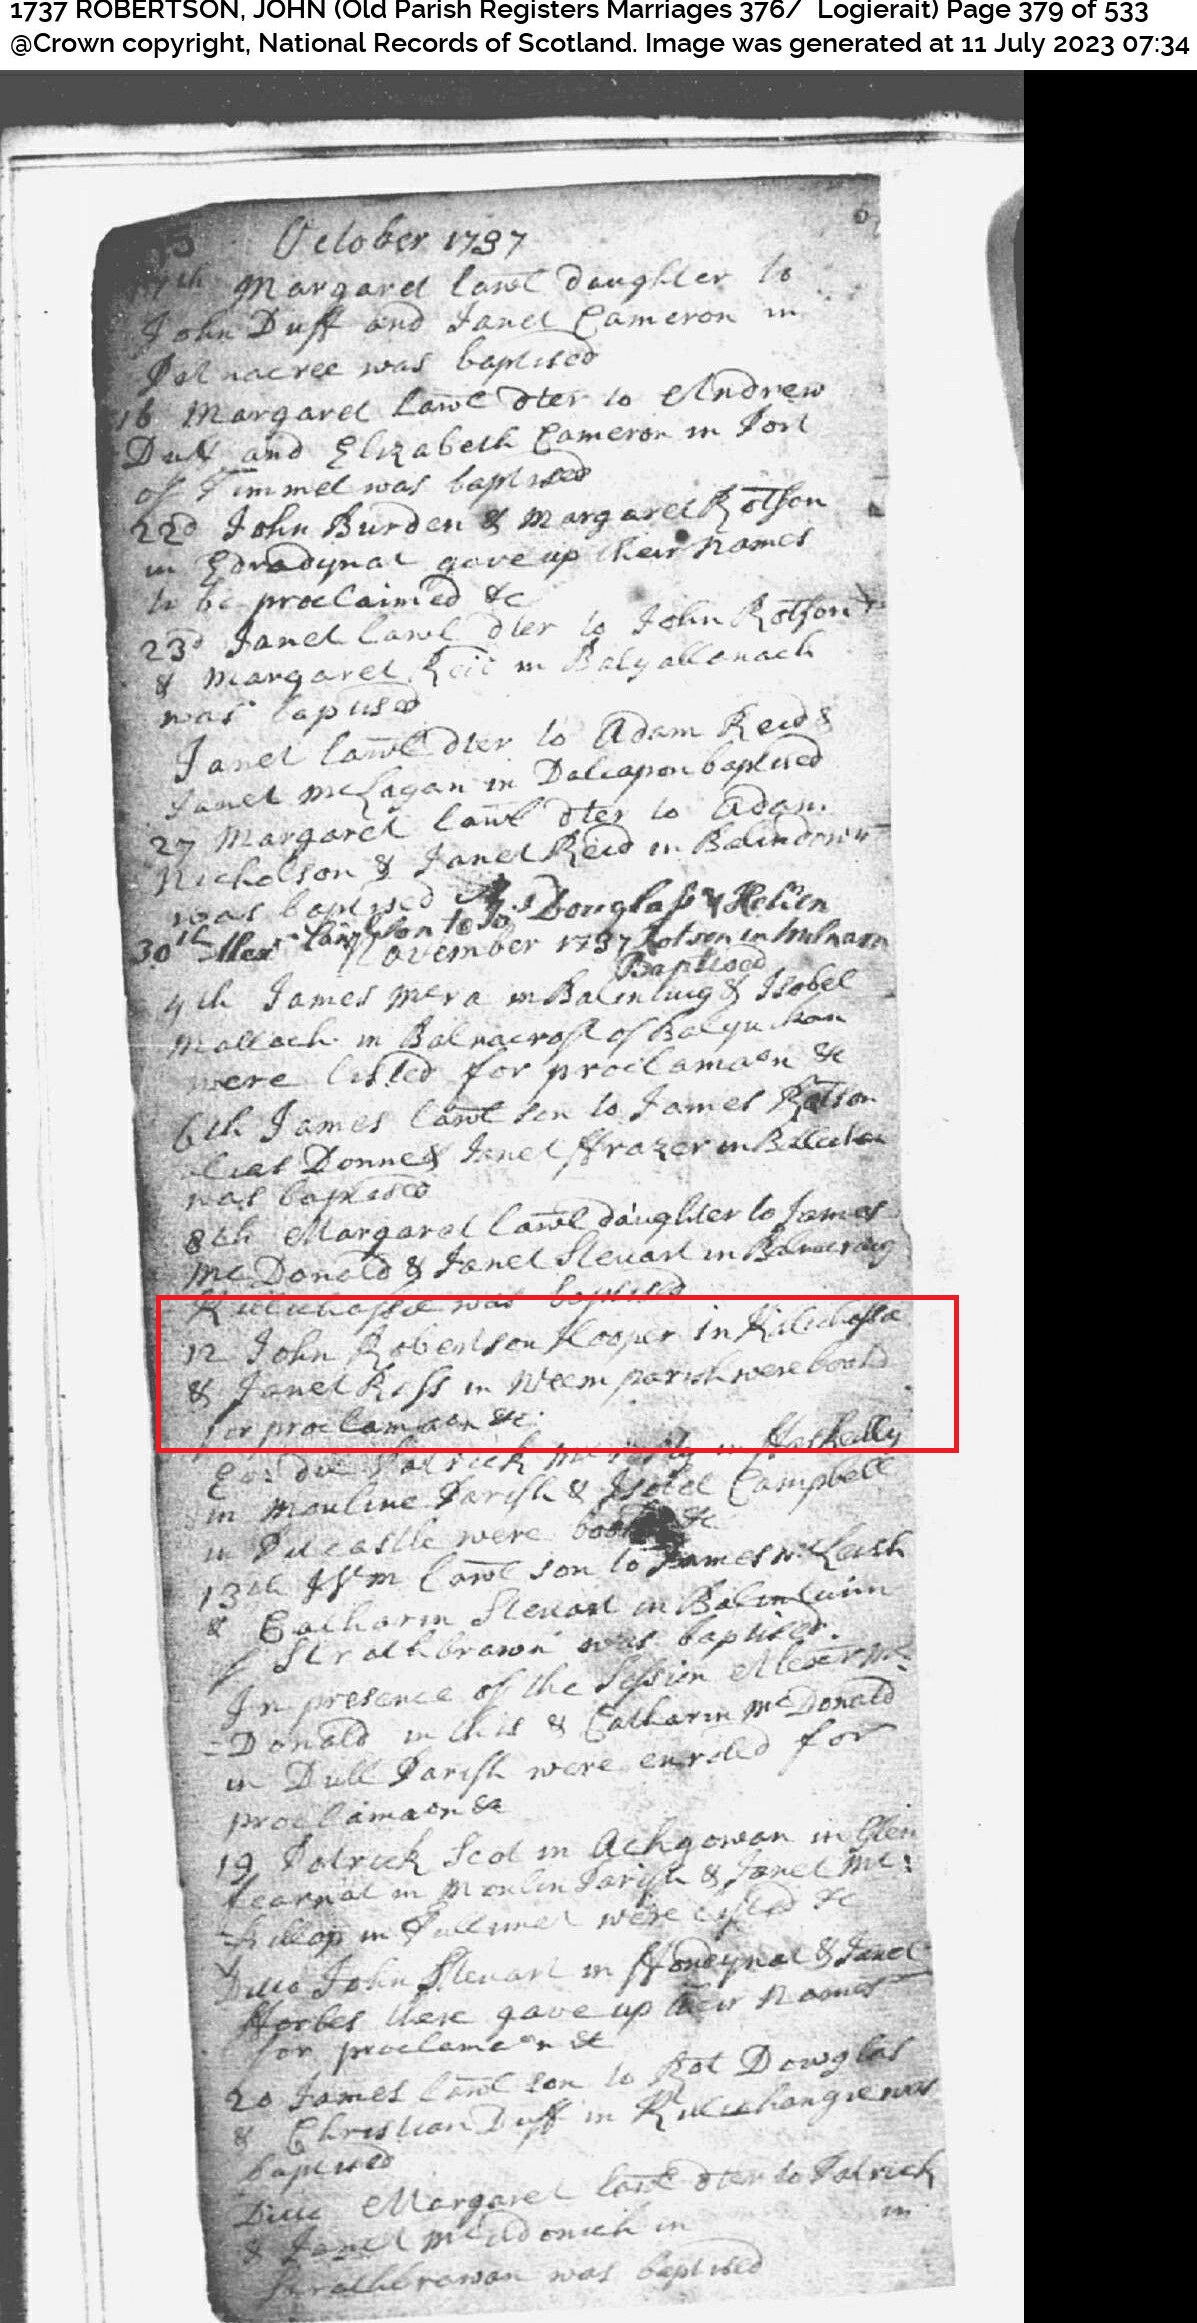 1737 ROBERTSON, JOHN (Old Parish Registers Marriages 376/ Logierait) Page 379 of 533
@Crown copyright, National Records of Scotland. Image was generated at 11 July 2023 07:34
October 1737
Margaret lawl daughter to
John Duff and Janet Cameron in
was baptised
16 Margaret lawl dter to Andrew
Duff and Elizabeth Cameron in Port
of Timmel was baptised
22d John Burden & Margaret Rotson
in Edradynat gave up their names
to be proclaimed &c
23d Janet lawl dter to John Rotson
& Margaret Reid in Balyallanach
was baptised
Janet lawl dter to Adam Reid &
Janet McLagan in Dalcapon baptised
27 Margaret lawl dter to Adam
Nicholson & Janet Reid in
was baptised Douglass & Helen
30th lawl son to Jo: November 1737 Rotson in
Baptised
4th James McRa in Balinluig & Isobel
Malloch in Balnacroft of
were listed for proclamaon &c
6th James lawl son to James Rotson
alias Donne & Janet ffrazer in
was baptised
8th Margaret lawl daughter to James
McDonald & Janet Steuart in
was baptised
12 John Robertson Kooper in Kilichassa
& Janet Ross in Weem parish were bookd
for proclamaon &c
Patrick in
in Mouline Parish & Isobel Campbell
in were &c
13th Wm lawl son to James
& Catharin Steuart in
of Strathbrawn was baptised.
In presence of the Session Alexr Mc
=Donald in this & Catharin McDonald
in Dull Parish were enroled for
proclamaon &c
19 Patrick Scot in Achgowan in Glen
in Moulin Parish & Janet Mc:
in were listed &c
Ditto John Steuart in & Janet
fforbes there gave up their names
for proclamaon &c
20 James lawl son to Rot Dowglas
& Christian Duff in was
baptised
Ditto Margaret lawl dter to Patrick
& Janet in in
was baptised